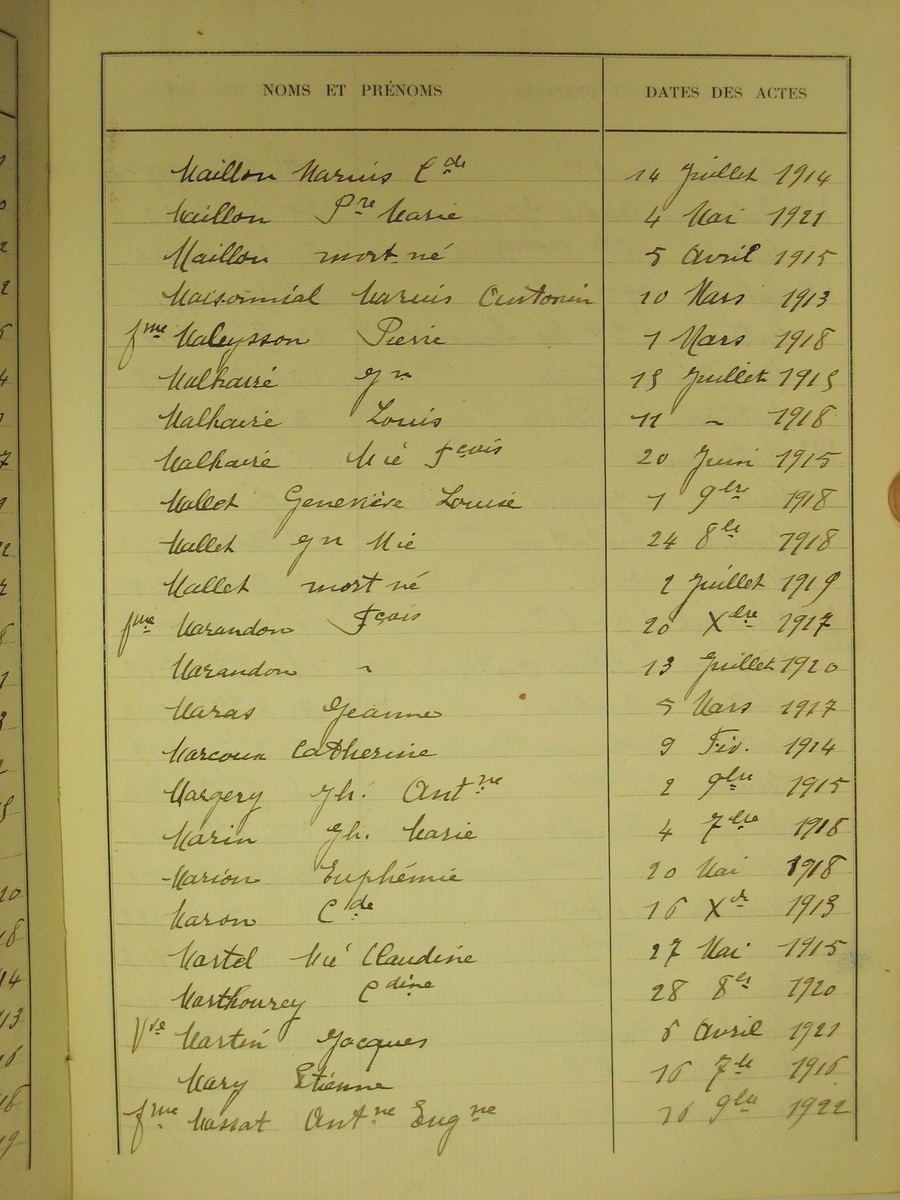 NOMS ET PRÉNOMS DATES DES ACTES
Maillon Marius Cde 14 Juillet 1914
Maillon Pre Marie 4 Mai 1921
Maillon mort-né 5 Avril 1915
Maisonnial Marius Antonin 10 Mars 1913
fme Maleysson Pierre 1 Mars 1918
Malhairé Jn 15 Juillet 1915
Malhairé Louis 11 ~ 1918
Malhairé Mié fçois 20 Juin 1915
Mallet Geneviève Louise 1 9bre 1918
Mallet Jn Mié 24 8bre 1918
Mallet mort né 2 Juillet 1919
fme Marandon Fçois 20 Xbre 1917
Marandon ~ 13 Juillet 1920
Maras Jeanne 5 Mars 1917
Marcoux Catherine 9 Fév. 1914
Margery Jh. Antne 2 9bre 1915
Marin Jh. Marie 4 7bre 1918
Marion Euphémie 20 Mai 1918
Maron Cde 16 Xbre 1913
Martel Mié Claudine 27 Mai 1915
Marthourey Cdine 28 8bre 1920
Vve Martin Jacques 6 Avril 1921
Mary Etienne 16 7bre 1916
fme Massat Antne Eugne 9bre 1922